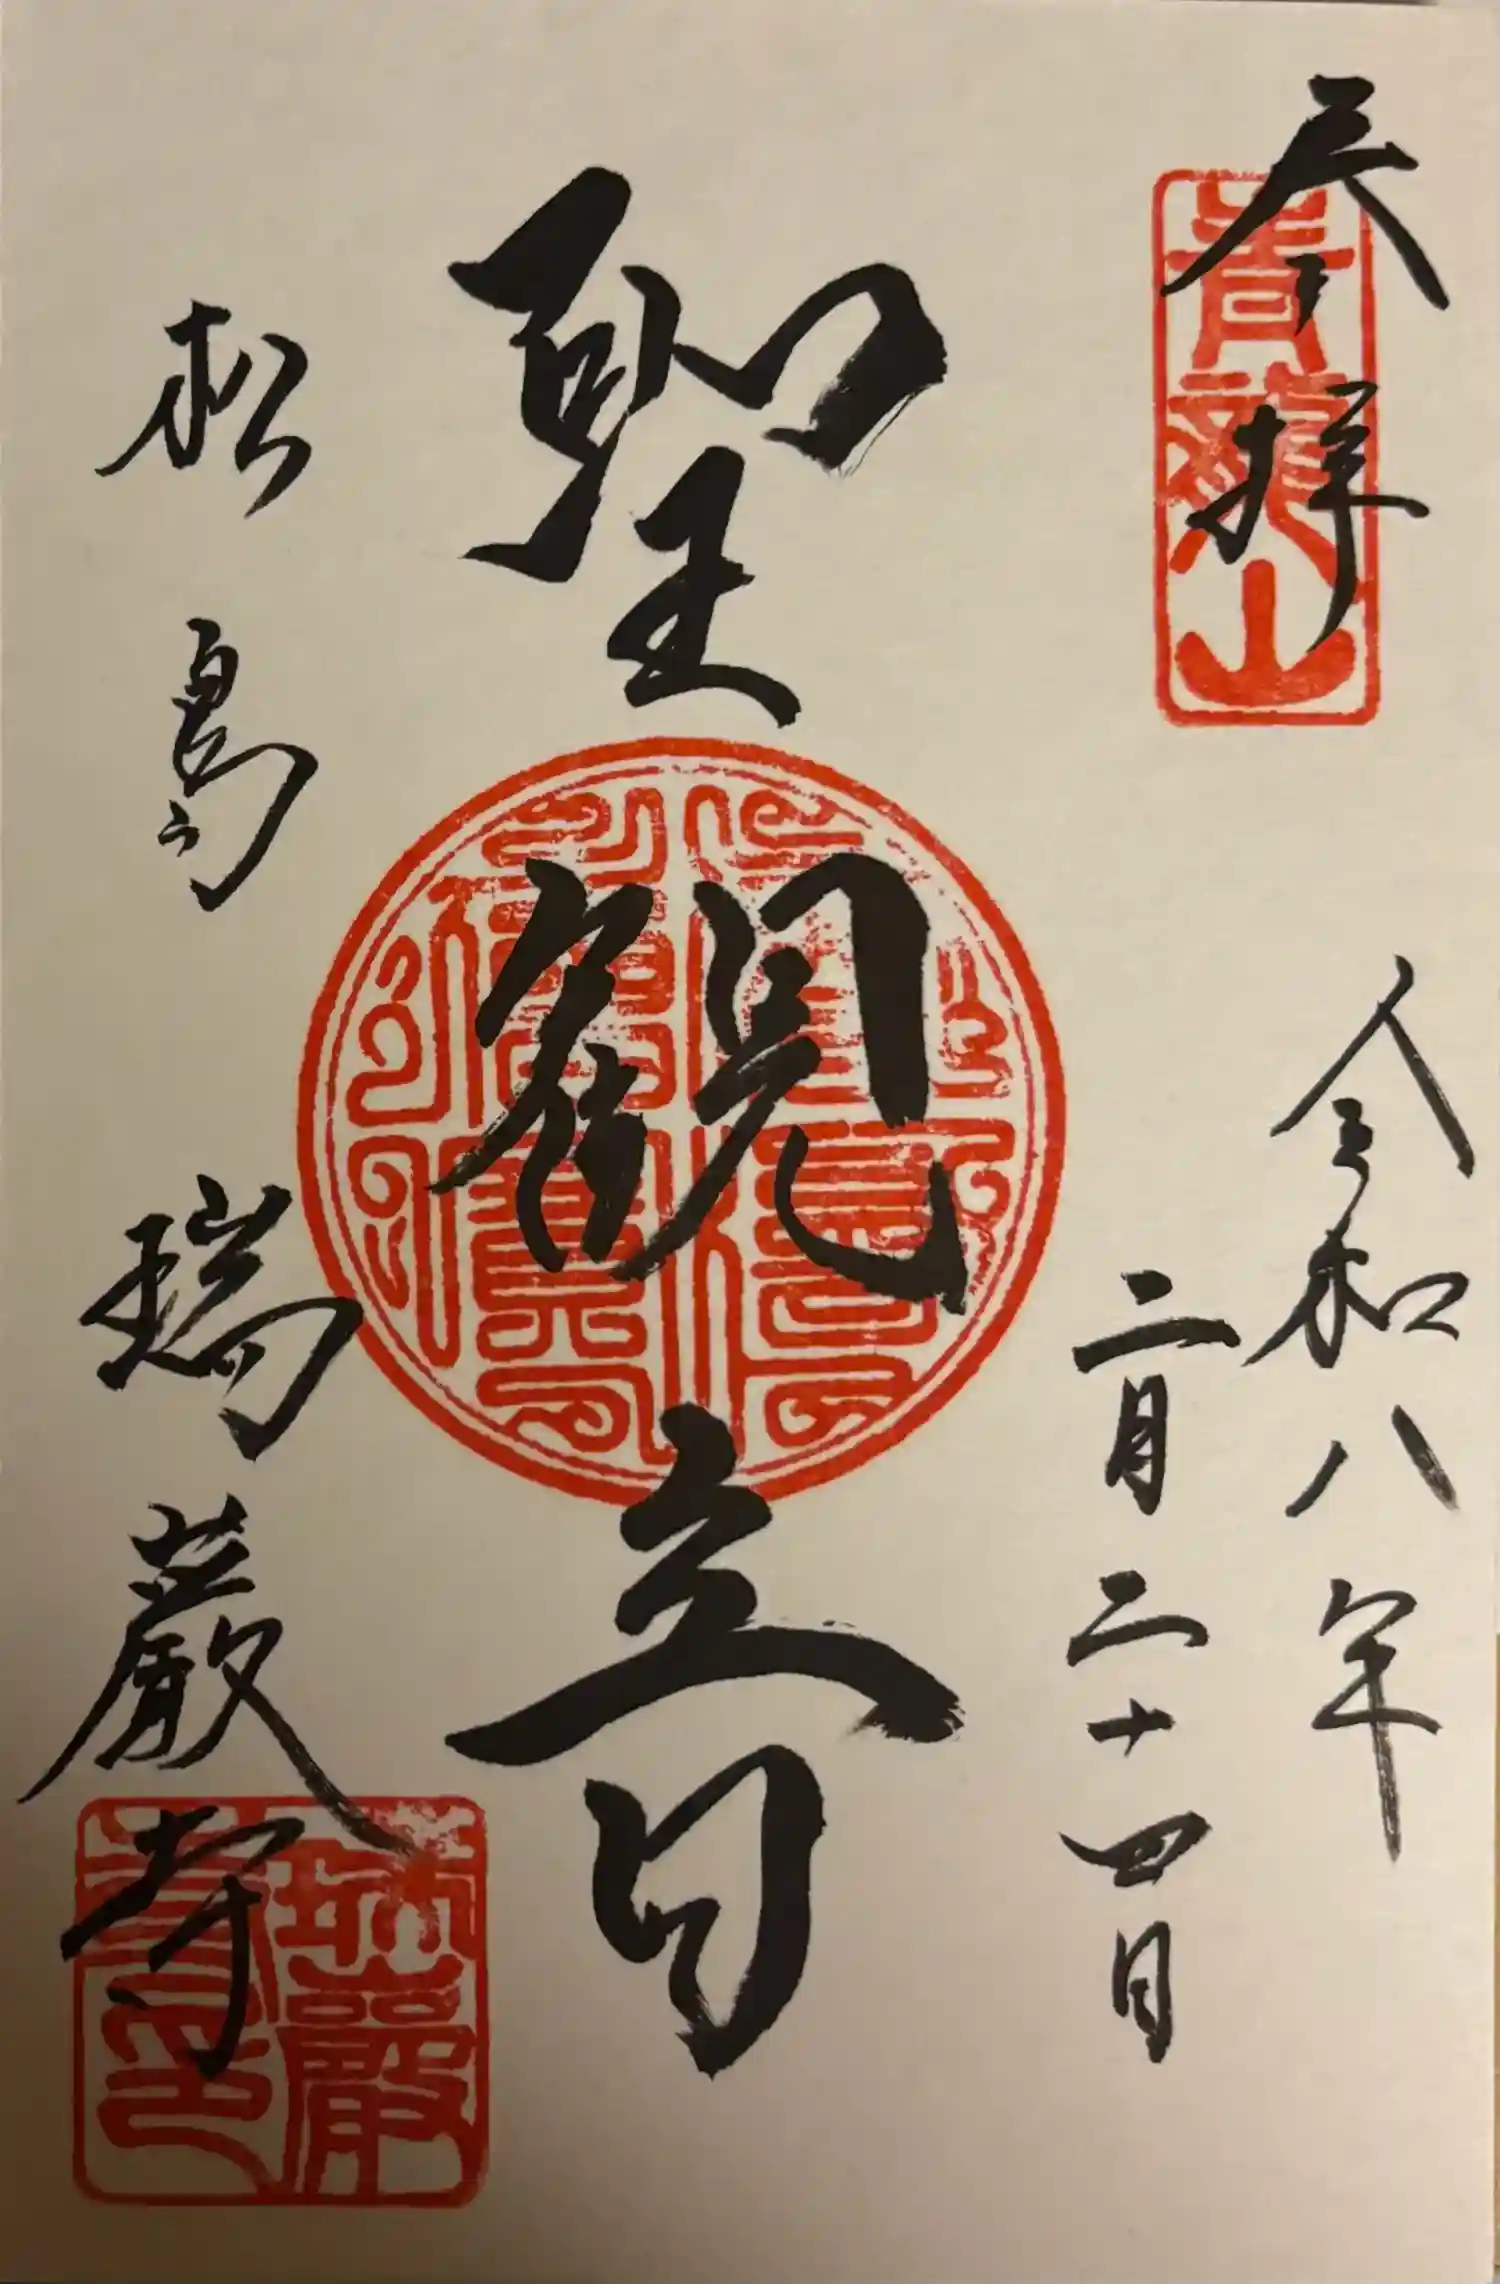 奉拝
青龍山
令和八年
二月二十四日
聖観立日
松島 瑞巌寺
瑞巌寺印